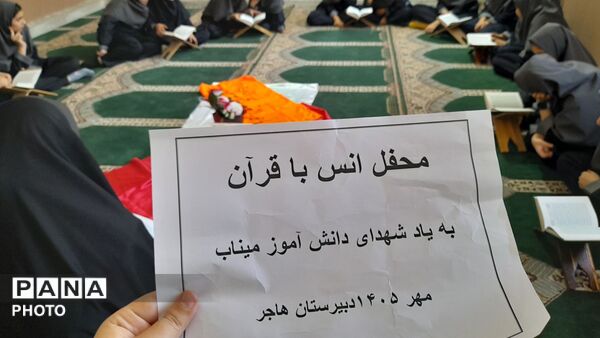 محفل انس با قرآن
به یاد شهدای دانش آموز میناب
مهر ۱۴۰۵دبیرستان هاجر
PANA
PHOTO